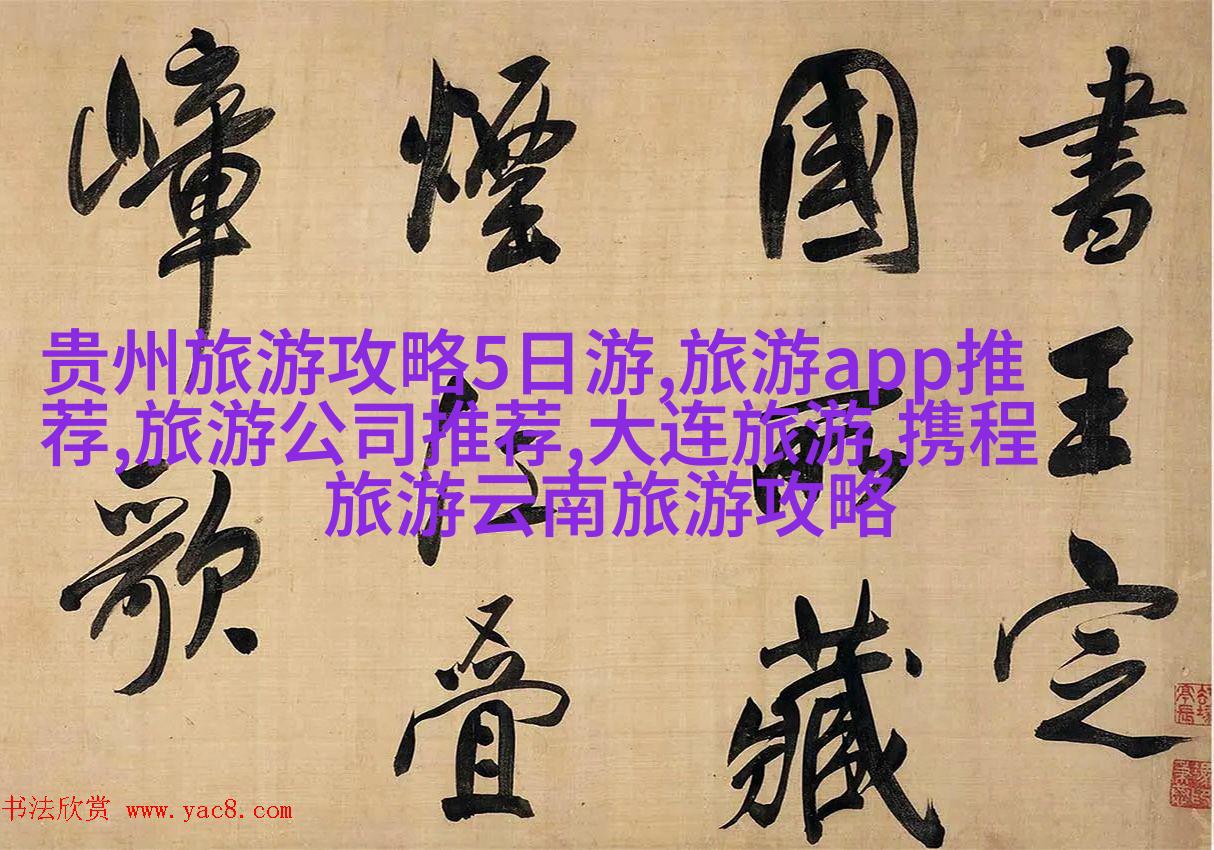 書王定
國所藏
煙江疊
嶂歌
贵州旅游攻略5日游,旅游app推
荐,旅游公司推荐,大连旅游,携程
旅游云南旅游攻略
书法欣赏 www.yac8.com